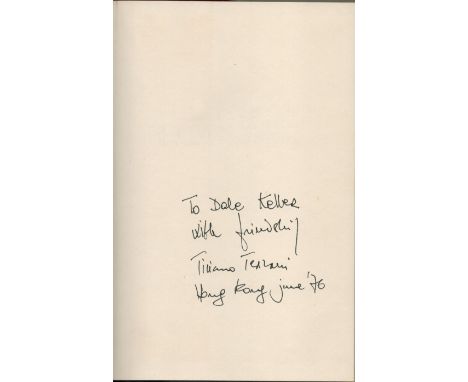 To Dale Keller
with friendship
Tiziano Terzani
Hong Kong june '76